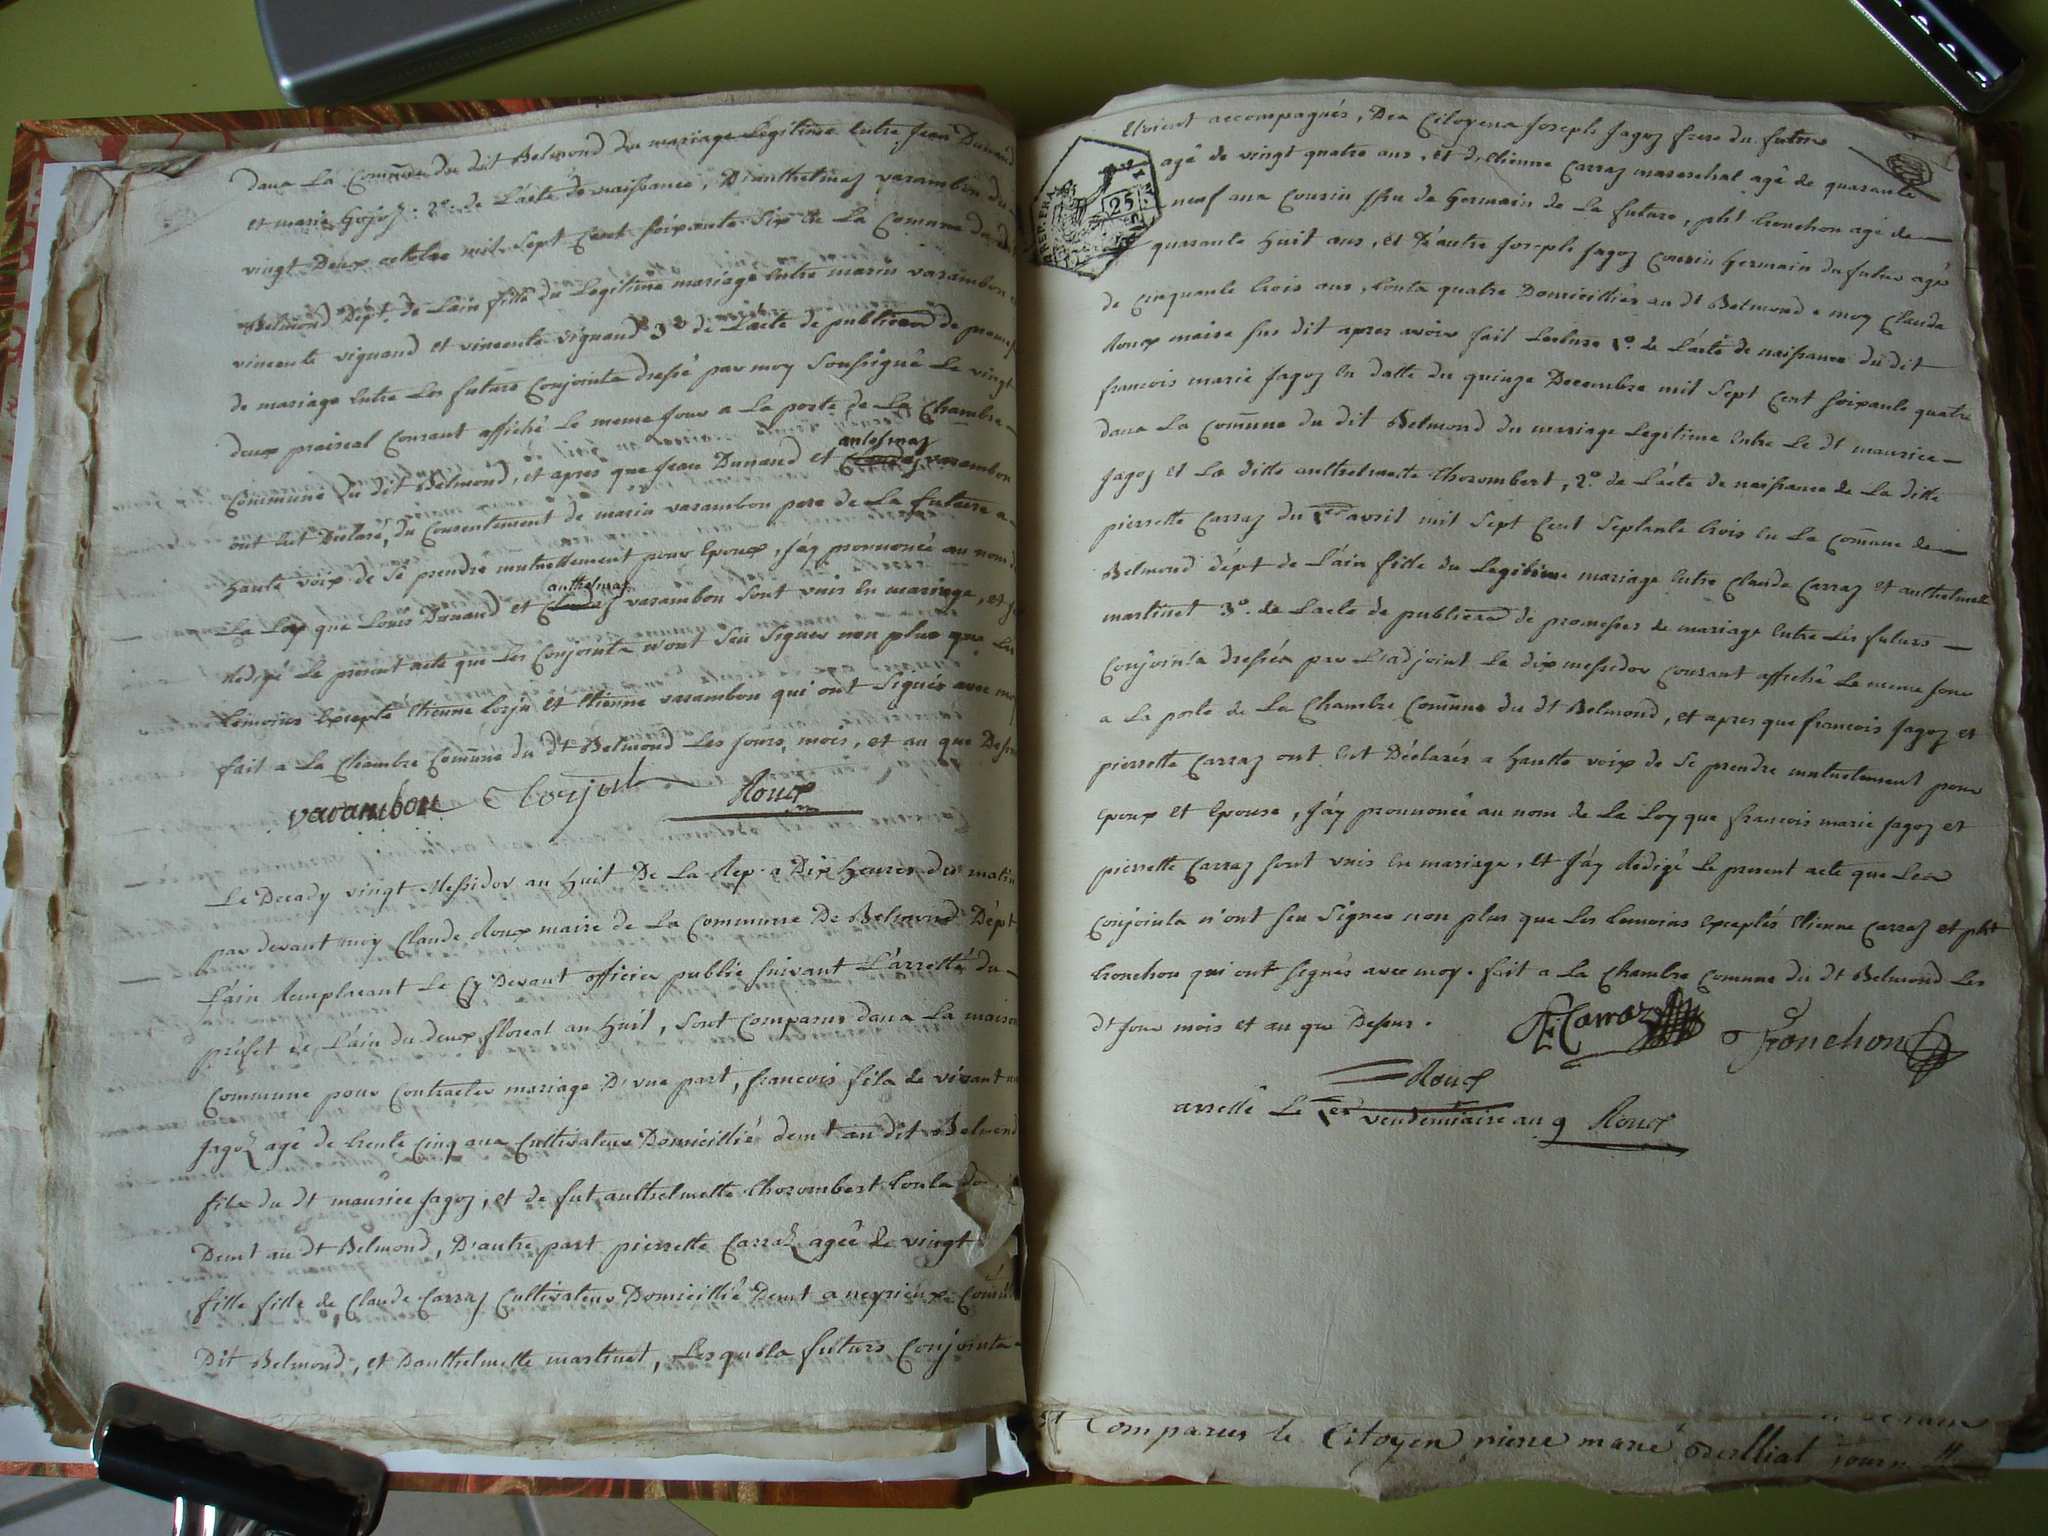 dans La Comũne du dit Belmond du mariage Legitime Entre Jean Dunand
et marie Gojoz : 2º. de L'acte de naissance, D'anthelmaz varambon du
vingt Deux octobre mil Sept Cent soixante Six en La Commune du dit
Belmond Dépt. de L'ain fille du Legitime mariage Entre marin varambon et
vincente vignand et vincente vignand 3º de L'acte de publication de promesse
de mariage Entre Les futurs Conjoints dressé par moy Soussigné Le vingt
deux prairial Courant affiché Le meme Jour a La porte de La Chambre
anthelmaz
Commune du dit Belmond, et apres que Jean Dunand et varambon
ont Eut Déclaré, du Consentement de marin varambon pere de La future a
Haute voix de Se prendre mutuellement pour Epoux, J'ay prononcé au nom de
anthelmaz
La Loy que Louis Dunand et varambon Sont unis En mariage, et J'ay
Redigé Le present acte que Les Conjoints n'ont Seu Signer non plus que Les
temoins Excepté Etienne Corju et Etienne varambon qui ont Signés avec moy
fait a La Chambre Comũne du dt Belmond Les Jours, mois, et an que Dessus
varambon Roux
Le Decady vingt Messidor an Huit De La Rep. a Dix Heures du matin
par devant moy Claude Roux maire de La Commune De Belmond Dépt
L'ain Remplacant Le Cy Devant officier public suivant L'arretté du
préfet de L'ain du deux floreal an Huit, Sont Comparus dans La maison
Commune pour Contracter mariage D'une part, francois fils de vivant
Jagoz agé de trente Cinq ans Cultivateur Domicillié demt au dit Belmond
fils du dt maurice Jagoz, et de fut anthelmette thorombert tous
Demt au dt Belmond, D'autre part pierrette Carraz agée de vingt
fille fille de Claude Carraz Cultivateur Domicillié Demt a neyrieux Comũne
Dit Belmond, et D'anthelmette martinet, Lesquels futurs Conjoints
Etoient accompagnés, Des Citoyens Joseph Jagoz frere du futur
25
agé de vingt quatre ans, et d'Etienne Carraz mareschal agé de quarante
neuf ans Cousin issu de Germain de La future, pht tronchon agé de
quarante Huit ans, et D'autre Joseph Jagoz Cousin Germain du futur agé
de Cinquante trois ans, touts quatre Domicilliés au dt Belmond & moy Claude
Roux maire sus dit apres avoir fait Lecture 1º. de L'acte de naissance du dit
francois marie Jagoz En datte du quinze Decembre mil Sept Cent soixante quatre
dans La Comũne du dit Belmond du mariage Legitime Entre Le dt maurice
Jagoz et La ditte anthelmette thorombert, 2º. de L'acte de naissance de La ditte
pierrette Carraz du 1er avril mil Sept Cent Septante trois En La Comũne de
Belmond dépt de L'ain fille du Legitime mariage Entre Claude Carraz et anthelmette
martinet 3º. de L'acte de publication de promesses de mariage Entre Les futurs
Conjoints dressés par L'adjoint Le dix messidor Courant affiché Le meme Jour
a La porte de La Chambre Comũne du dt Belmond, et apres que francois Jagoz et
pierrette Carraz ont Eut Déclarés a Hautte voix de Se prendre mutuelement pour
Epoux et Epouse, J'ay prononcé au nom de La Loy que francois marie Jagoz et
pierrette Carraz sont unis En mariage, et J'ay Redigé Le present acte que Les
Conjoints n'ont seu Signer non plus que Les temoins Exceptés Etienne Carraz et pht
tronchon qui ont Signés avec moy. fait a La Chambre Comune du dt Belmond Les
dt Jour mois et an que Dessus.
Carraz Tronchon
Roux
arretté Le 1er vendemiaire an 9 Roux
Comparus le Citoyen piere marie